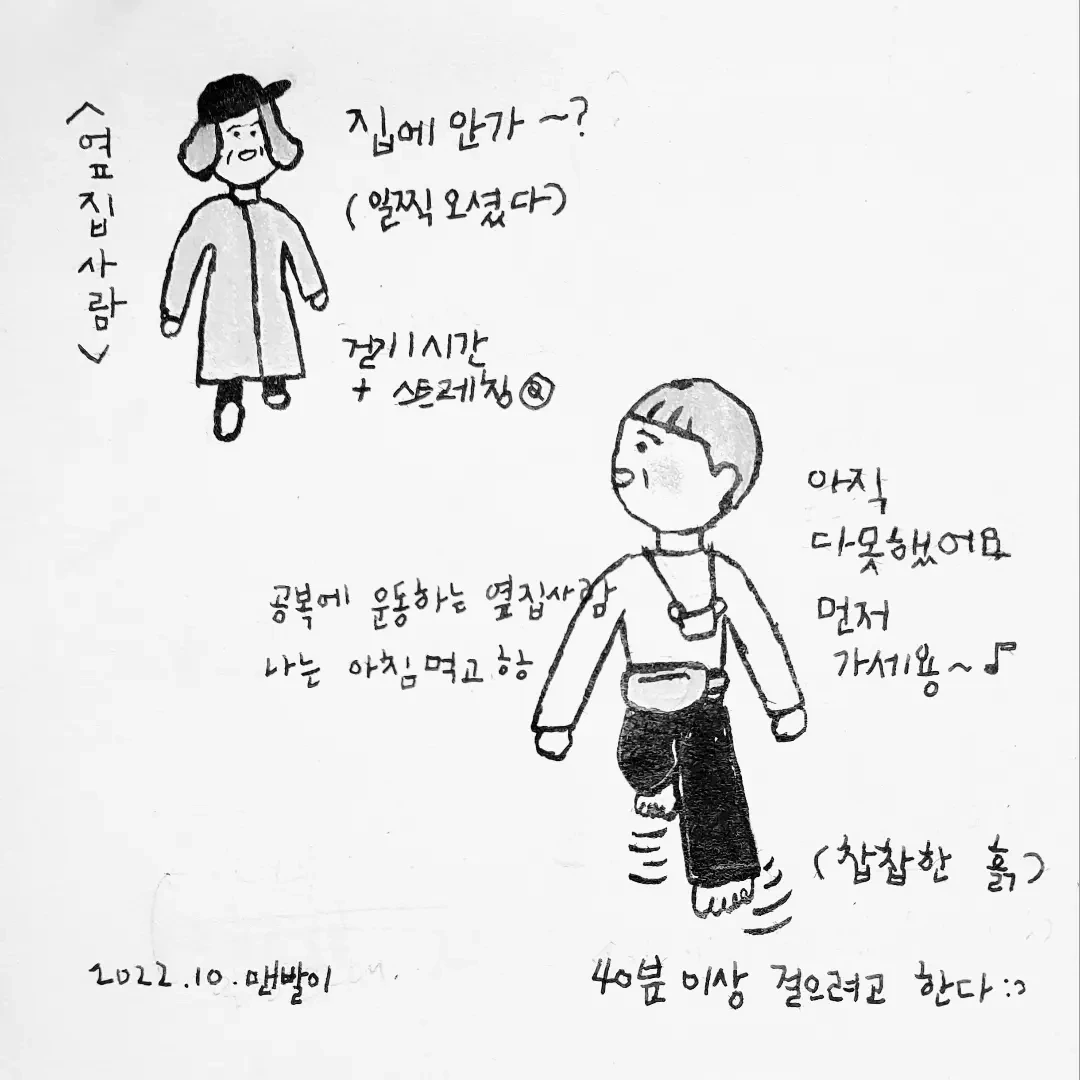 <옆집사람>
집에 안가~?
(일찍 오셨다)
걷기 1시간
+ 스트레칭
아직
다못했어요
먼저
가세용~♪
공복에 운동하는 옆집사람
나는 아침먹고 함
(찹찹한 흙)
2022.10.맨발이
40붐 이상 걸으려고 한다:)